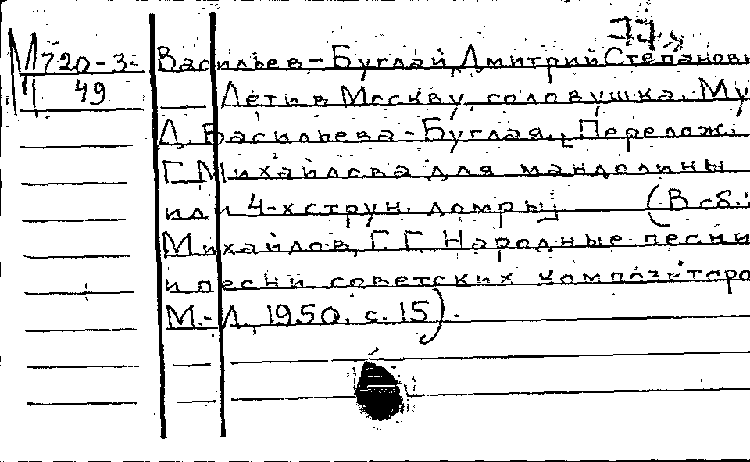 М720-3-
49
Васильев-Буглай, Дмитрий Степанови
Лети в Москву, соловушка. Му
Д. Васильева-Буглая. [Перелож.
Г. Михайлова для мандолины
или 4-хструн. домры] (В сб.:
Михайлов, Г.Г. Народные песни
и песни советских композиторо
М.-Л., 1950, с. 15).